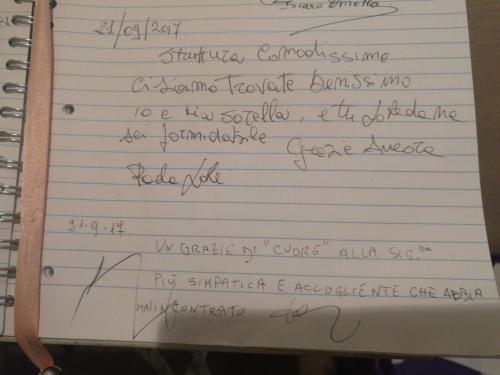 21/09/2017
Struttura Comodissime
Ci siamo trovate benissimo
io e mia sorella, e tu Loredana
sei formidabile
Grazie Ancora
Paola
21-9-17
UN GRAZIE DI "CUORE" ALLA SIG.RA
PIÙ SIMPATICA E ACCOGLIENTE CHE ABBIA
MAI INCONTRATO